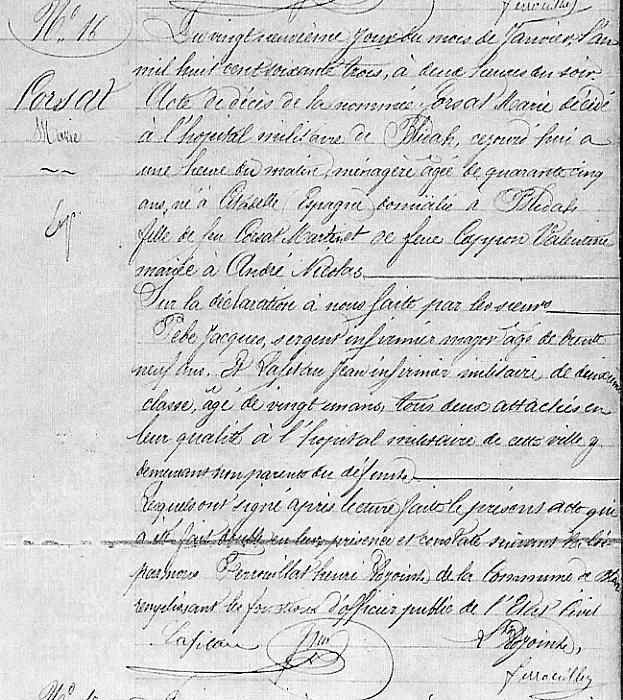 ferrouillez
No 16
Du vingt neuvième jour du mois de Janvier, l'an
mil huit cent soixante trois, à deux heures du soir
Corsat
Marie
Esp.
Acte de décès de la nommée Corsat Marie décédé
à l'hopital militaire de Blidah, cejourd'hui a
une heure du matin, ménagère âgée de quarante cinq
ans, né à (Espagne) domicilié à Blidah
fille de feu Corsat Martin et de feue Cappron Valentine
mariée à André Nicolas
Sur la déclaration à nous faite par les sieurs
Pebe Jacques, sergent infirmier major âgé de trente
neuf ans, Et Lapitau Jean infirmier militaire de deuxième
classe, âgé de vingt un ans, tous deux attachés en
leur qualité à l'hopital militaire de cette ville y
demeurant non parents du défunte
Lesquels ont signé après lecture faite le présent acte qui
a été fait double en leur présence et constaté suivant la loi
par nous Ferrouillat henri adjoint de la Commune de
remplissant les fonctions d'officier public de l'Etat Civil
Lapitau
L'adjoint,
ferrouillez
No